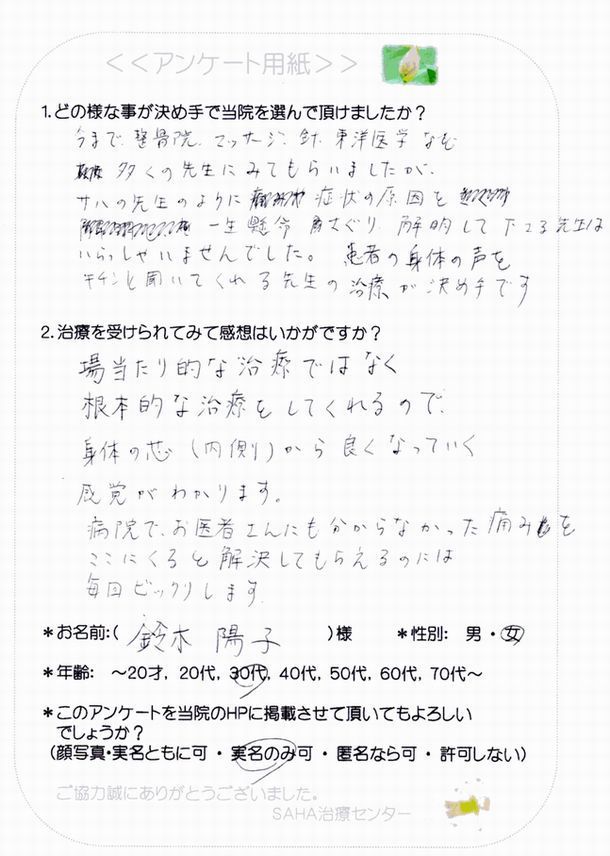 <<アンケート用紙>>
1.どの様な事が決め手で当院を選んで頂けましたか？
今まで、整骨院、マッサージ、針、東洋医学など
多くの先生にみてもらいましたが、
サハの先生のように 症状の原因を
一生懸命 さぐり、解明して下さる先生は
いらっしゃいませんでした。 患者の身体の声を
キチンと聞いてくれる先生の治療が決め手です
2.治療を受けられてみて感想はいかがですか？
場当たり的な治療ではなく
根本的な治療をしてくれるので、
身体の芯（内側）から良くなっていく
感覚がわかります。
病院で、お医者さんにも分からなかった痛みを
ここにくると解決してもらえるのには
毎回ビックリします。
＊お名前:( 鈴木 陽子 )様 ＊性別: 男・女
＊年齢: 〜20才, 20代, 30代, 40代, 50代, 60代, 70代〜
＊このアンケートを当院のHPに掲載させて頂いてもよろしい
でしょうか？
（顔写真・実名ともに可 ・ 実名のみ可 ・ 匿名なら可 ・ 許可しない）
ご協力誠にありがとうございました。
SAHA治療センター